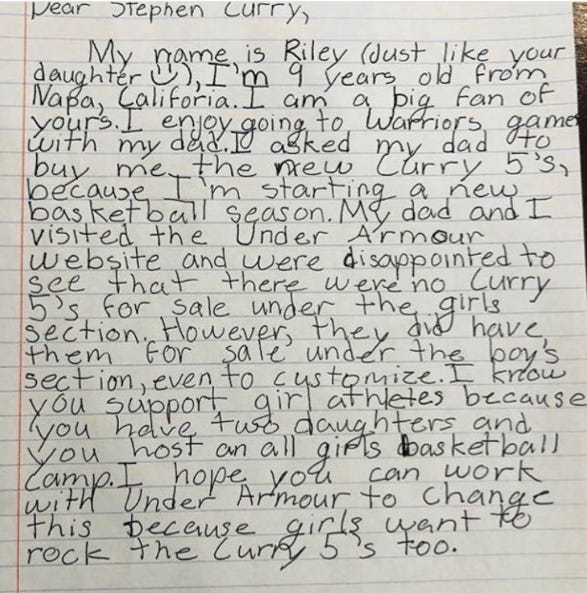 Dear Stephen Curry,
My name is Riley (Just like your
daughter ☺), I'm 9 years old from
Napa, Califoria. I am a big fan of
yours. I enjoy going to Warriors games
with my dad. I asked my dad to
buy me the new Curry 5's,
because I'm starting a new
basketball season. My dad and I
visited the Under Armour
website and were disappointed to
see that there were no Curry
5's for sale under the girls
section. However, they did have
them for sale under the boy's
section, even to customize. I know
you support girl athletes because
you have two daughters and
you host an all girls basketball
camp. I hope you can work
with Under Armour to change
this because girls want to
rock the Curry 5's too.